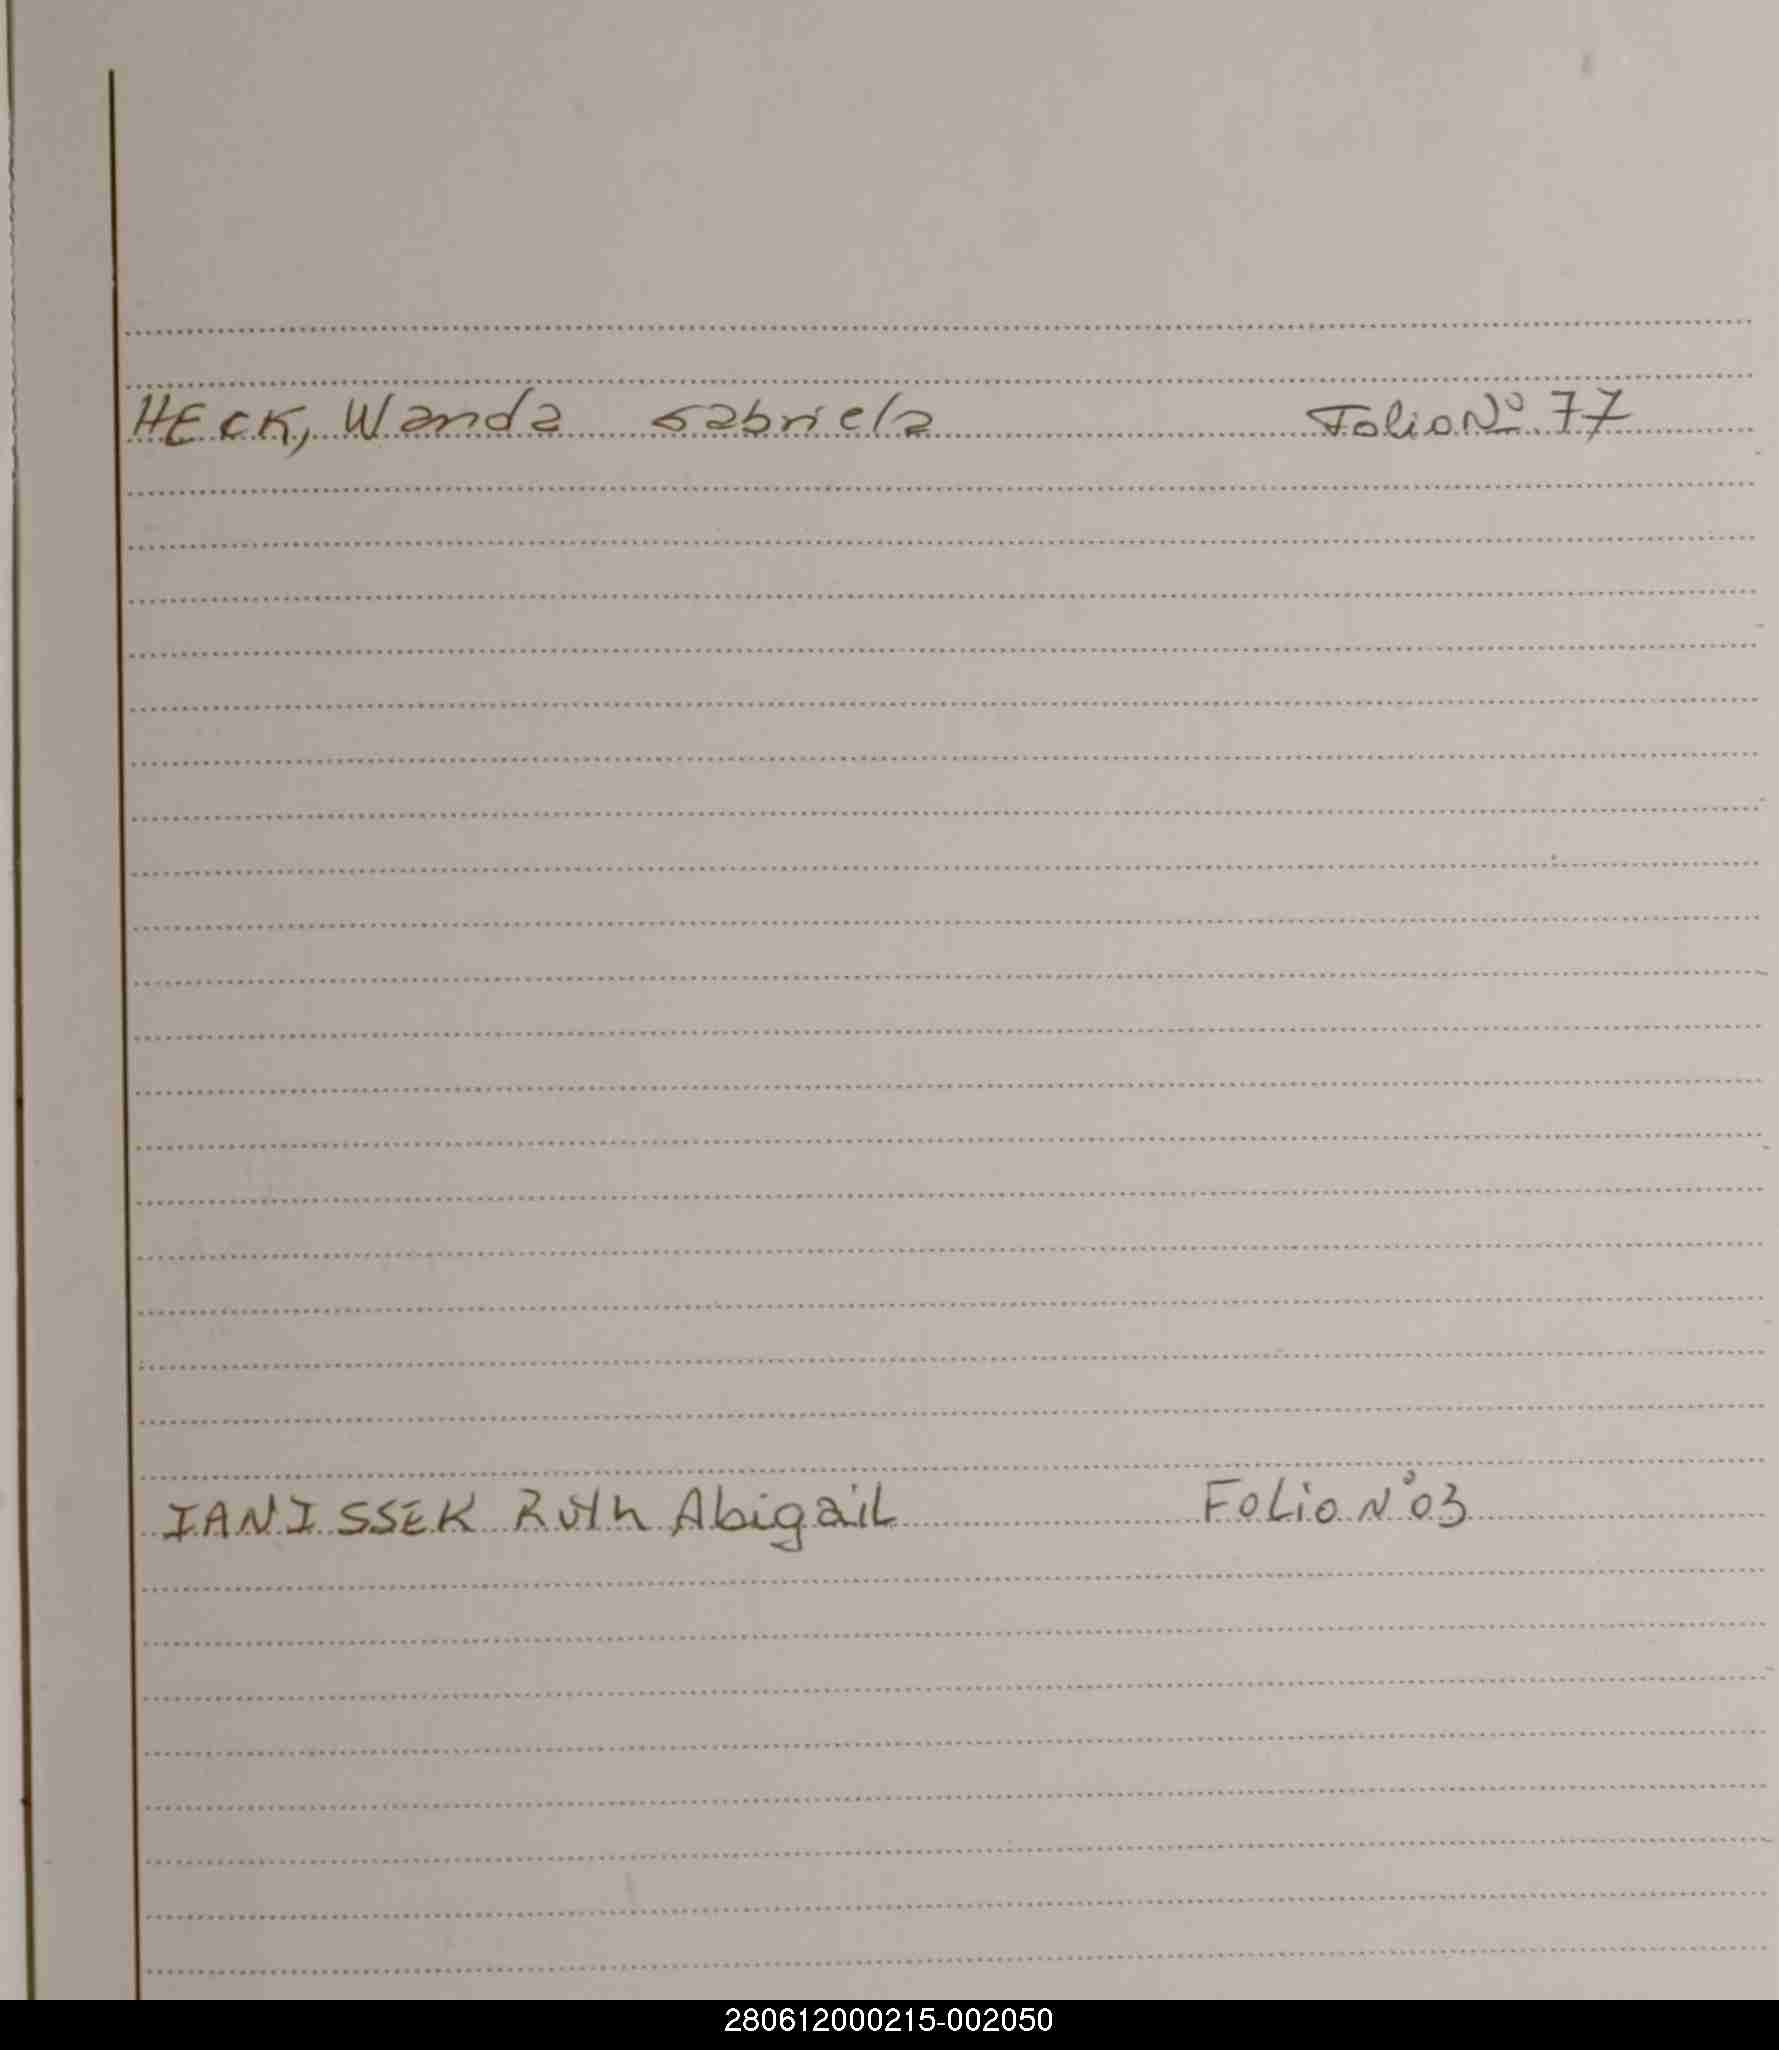 HECK, Wanda Gabriela Folio Nº 77
IANISSEK Ruth Abigail FOLio N° 03
280612000215-002050